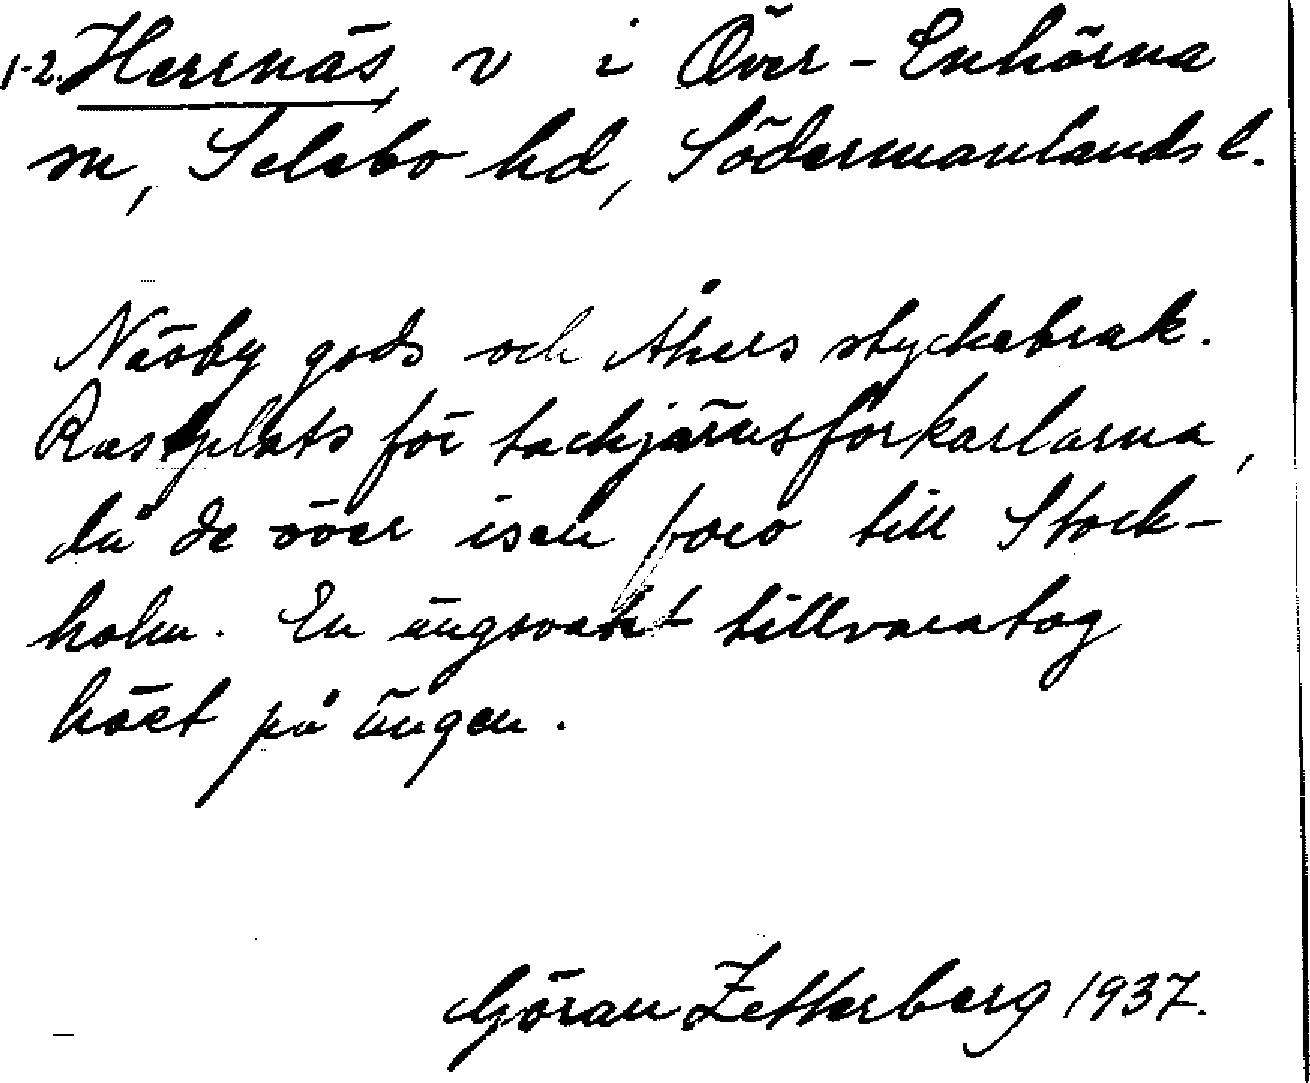 1-2. Herrnäs, v i Över-Enhörna
sn, Selebo hd, Södermanlands l.
Näsby gods och Åkers styckebruk.
Rastplats för tackjärnsforkarlarna,
då de över isen foro till Stock-
holm. En ängsvakt tillvaratog
höet på ängen.
Göran Zetterberg 1937.